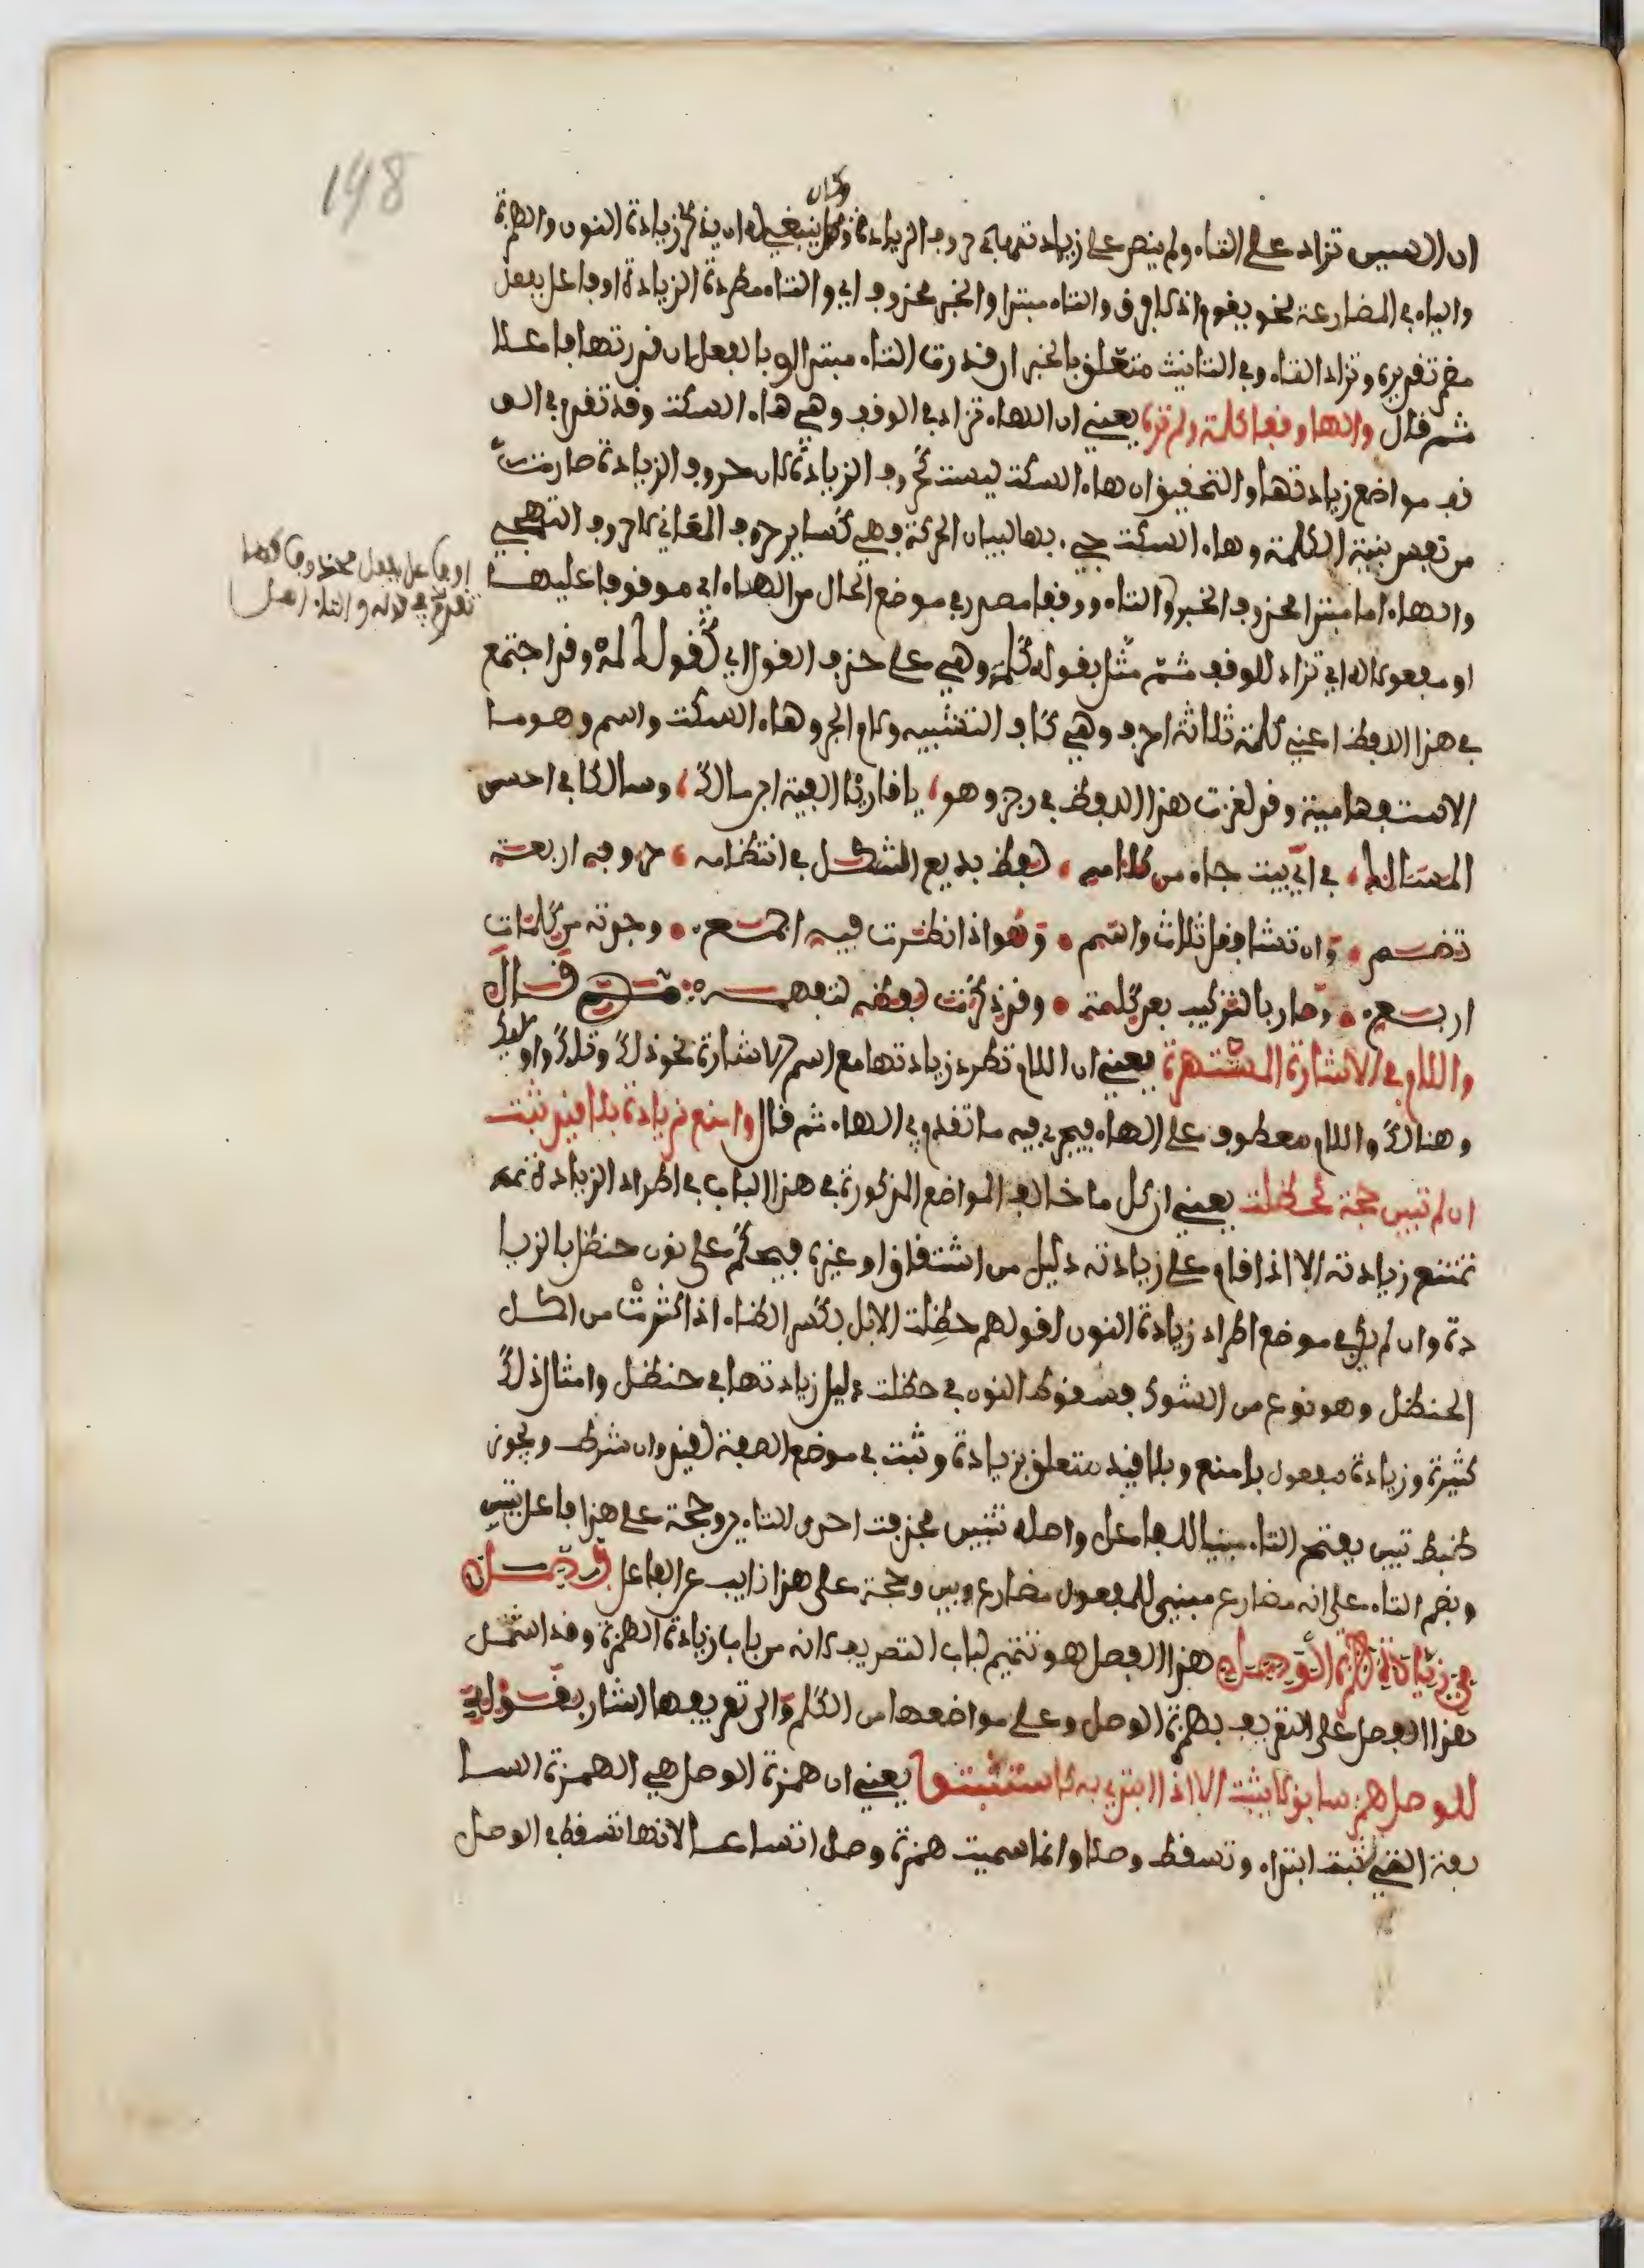 198
وكان
ان السين تزاد على التاء ولم ينص على زيادتها في حروف الزيادة وكان ينبغي له ان يذكر زيادة النون والهمزة
والياء في المضارعة نحو يقوم اذ لا فرق والتاء مبتدا والخبر محذوف اي والتاء مطردة الزيادة او فاعل بفعل
مضمر تقديره وتزاد التاء وفي التانيث متعلق بالخبر ان قدرت التاء مبتدا او بالفعل ان قدرتها فاعلا
ثم قال والهاء وقفا كلمه ولم تره يعني ان الهاء تزاد في الوقف وهي هاء السكت وقد تقدم في الو
قف مواضع زيادتها والتحقيق ان هاء السكت ليست كحروف الزيادة لان حروف الزيادة صارت
من نفس بنية الكلمة وهاء السكت جيء بها لبيان الحركة وهي كسائر حروف المعاني لا حروف التهجي
والهاء اما مبتدا محذوف الخبر والتاء ووقفا مصدر في موضع الحال من الهاء اي موقوفا عليها
او فاعل بفعل محذوف كما
تقدم في قوله والتاء اصل
او مفعول له اي تزاد للوقف ثم مثل بقوله كلمه وهي على حذف القول اي كقولك لمه وقد اجتمع
في هذا اللفظ اعني كلمه ثلاثة احرف وهي كاف التشبيه ولام الجر وهاء السكت واسم وهو ما
الاستفهامية وقد لغزت هذا اللفظ في رجز وهو يا قارئا الفية ابن مالك وسالكا في احسن
المسالك في اي بيت جاء من كلامه لفظ بديع الشكل في انتظامه حروفه اربعة
تضم وان تشا فقل ثلاث واسم وهو اذا نظرت فيه اجمع وجدته من كلمات
اربع وصار بالتركيب بعد كلمه وقد ذكرت لفظه لتفهمه ثم قال
واللام في الاشارة المشتهره يعني ان اللام تطرد زيادتها مع اسم الاشارة نحو ذلك وتلك واولالك
وهنالك واللام معطوف على الهاء فيجري فيه ما تقدم في الهاء ثم قال وامنع زيادة بلا قيد ثبت
ان لم تبين حجة كحظلت يعني ان كل ما خالف المواضع المذكورة في هذا الباب في اطراد الزيادة
تمتنع زيادته الا اذا قام على زيادته دليل من اشتقاق او غيره فيحكم على نون حنظل بالزيا
دة وان لم يكن في موضع اطراد زيادة النون لقولهم حظلت الابل بكسر الظاء اذا كثرت من اكل
الحنظل وهو نوع من الشوك فسقوط النون في حظلت دليل زيادتها في حنظل وامثال ذلك
كثيرة وزيادة مفعول بامنع وبلا قيد متعلق بزيادة وثبت في موضع الصفة لقيد وان شرط ويجوز
ضبط تبين بفتح التاء مبنيا للفاعل واصله تتبين فحذفت احدى التاءين وحجة على هذا فاعل تبين
وبضم التاء على انه مضارع مبني للمفعول مضارع وبين وحجة على هذا نايب عن الفاعل فصل
في زيادة همزة الوصل هذا الفصل هو تتميم لباب التصريف لانه من باب زيادة الهمزة وقد اشتمل
هذا الفصل على التعريف بهمزة الوصل وعلى مواضعها من الكلم والى تعريفها اشار بقوله
للوصل همز سابق لا يثبت الا اذا ابتدي به كاستثبتوا يعني ان همزة الوصل هي الهمزة السا
بقة التي تثبت ابتداء وتسقط وصلا وانما سميت همزة وصل اتساعا لانها تسقط في الوصل